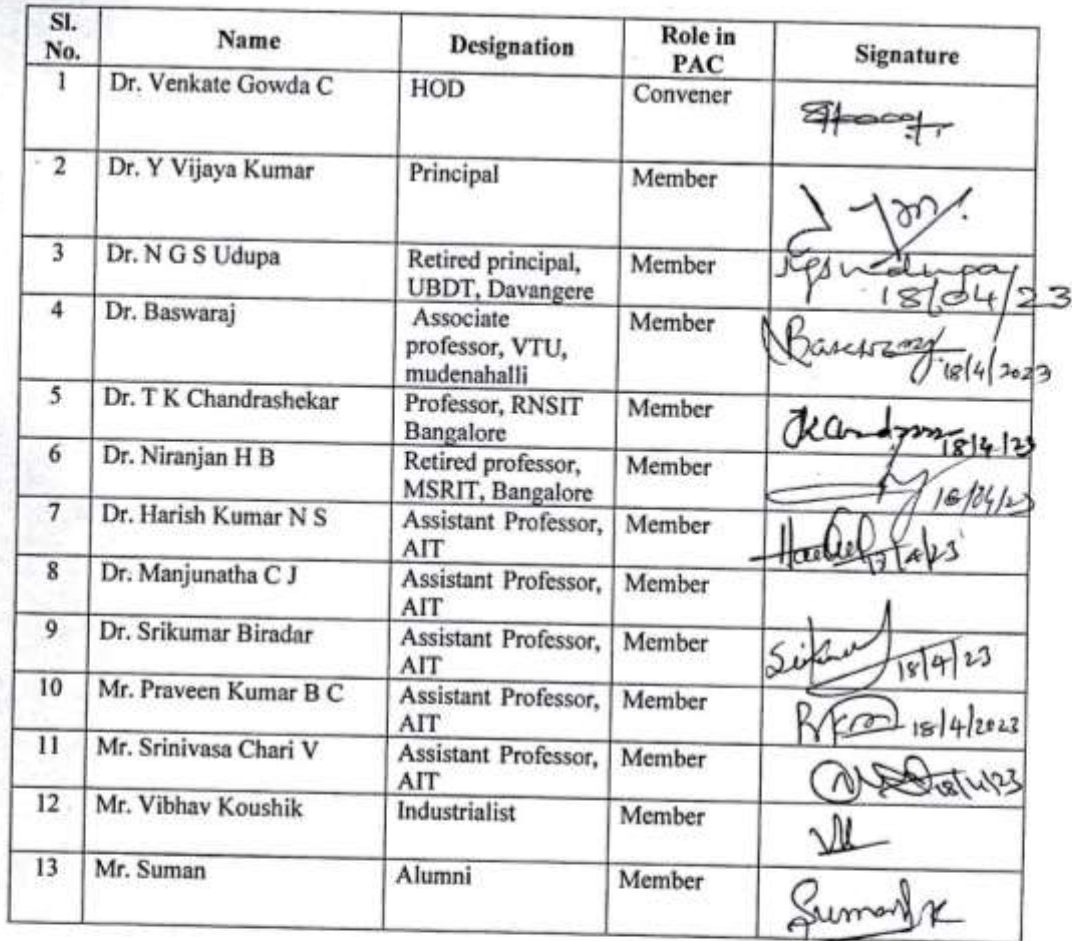 Sl. No. Name Designation Role in PAC Signature
1 Dr. Venkate Gowda C HOD Convener
2 Dr. Y Vijaya Kumar Principal Member
3 Dr. N G S Udupa Retired principal, Member
UBDT, Davangere 18/04/23
4 Dr. Baswaraj Associate Member
professor, VTU,
mudenahalli 18/4/2023
5 Dr. T K Chandrashekar Professor, RNSIT Member
Bangalore 18/4/23
6 Dr. Niranjan H B Retired professor, Member
MSRIT, Bangalore
7 Dr. Harish Kumar N S Assistant Professor, Member
AIT
8 Dr. Manjunatha C J Assistant Professor, Member
AIT
9 Dr. Srikumar Biradar Assistant Professor, Member
AIT 18/4/23
10 Mr. Praveen Kumar B C Assistant Professor, Member
AIT 18/4/2023
11 Mr. Srinivasa Chari V Assistant Professor, Member
AIT 18/4/23
12 Mr. Vibhav Koushik Industrialist Member
13 Mr. Suman Alumni Member